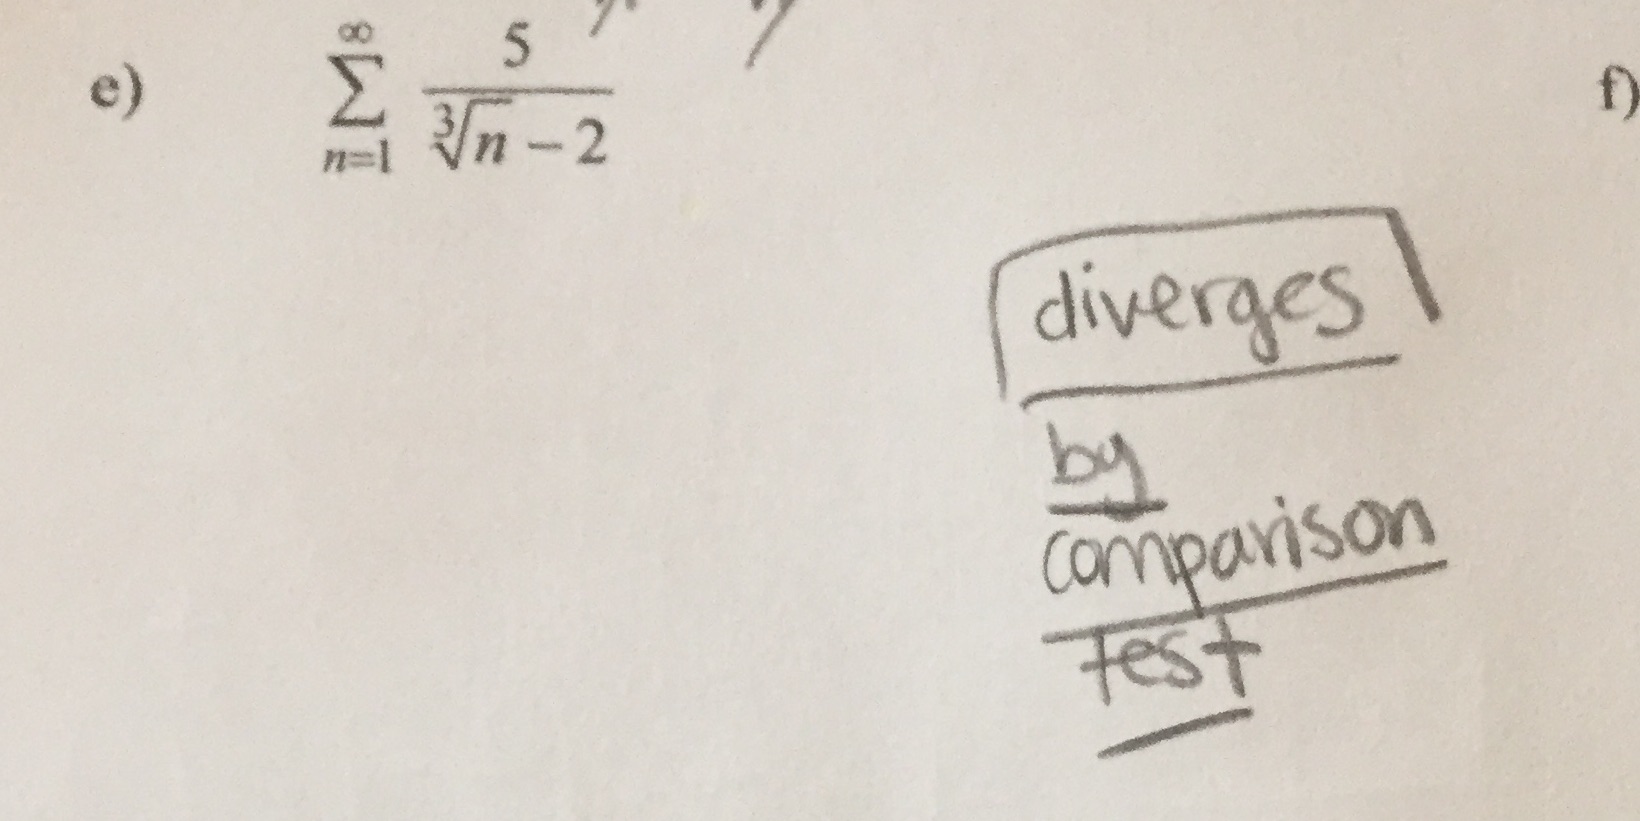 e) ∞ 5 f)
Σ
n=1 ∛n − 2
diverges
by
comparison
Test